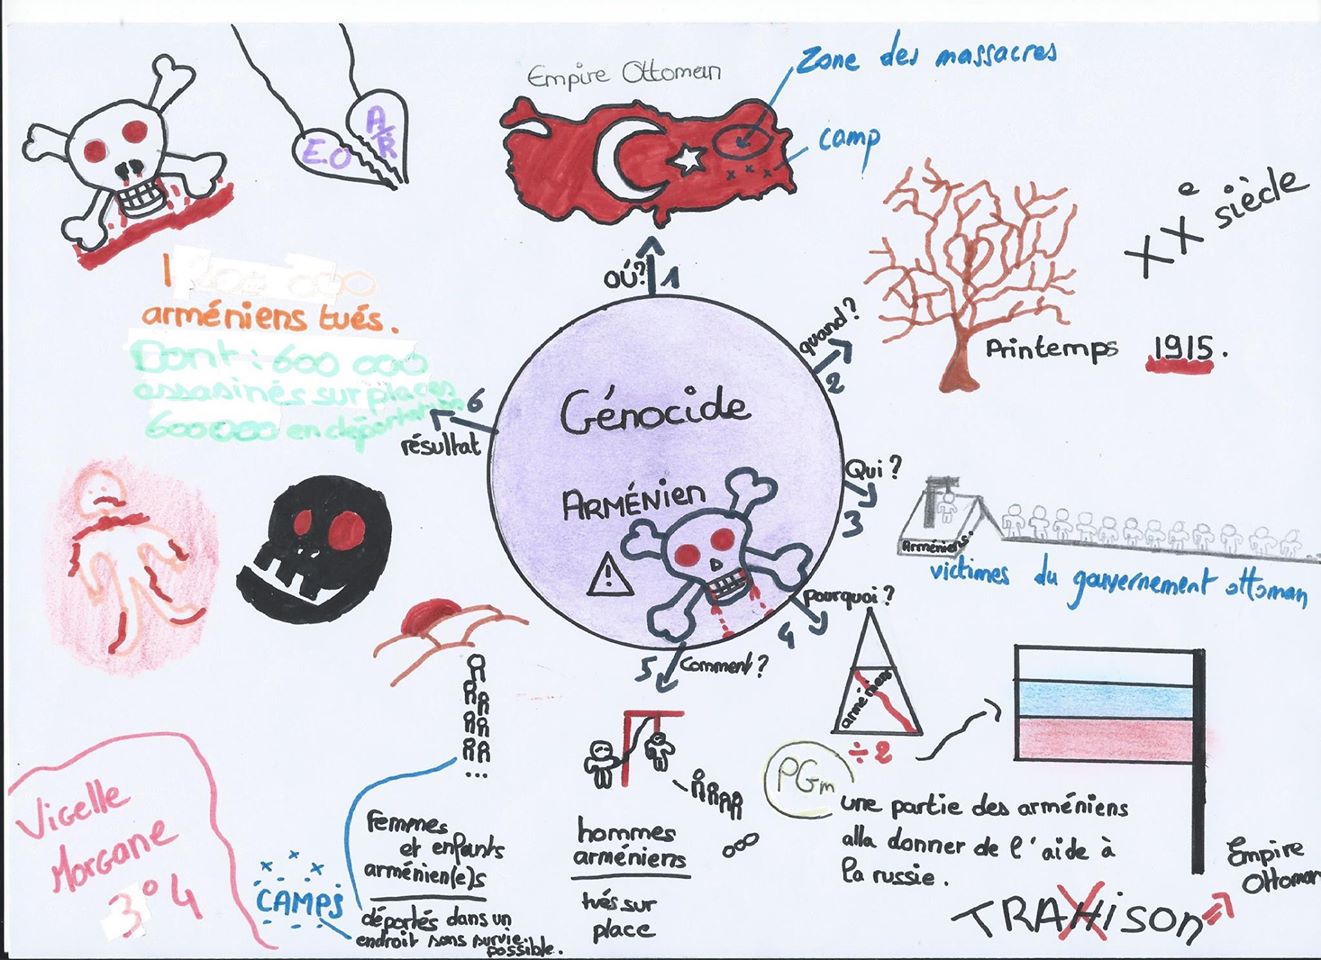 Empire Ottoman
Zone des massacres
camp
E.O
A/R
XXe siècle
OÚ?
1
quand?
2
Printemps 1915.
1
arméniens tués.
Dont : 600 000
assasinés sur places
600000 en déportation
6
résultat
Génocide
ARMÉNIEN
!
Qui?
3
Arméniens.
victimes du gouvernement ottoman
pourquoi?
4
arméniens
÷2
Comment?
5
PGm
une partie des arméniens
alla donner de l'aide à
la russie.
TRAHison
Empire
Ottoman
hommes
arméniens
tués sur
place
femmes
et enfants
arménien(e)s
déportés dans un
endroit sans survie
possible.
CAMPS
Vigelle
Morgane
3°4